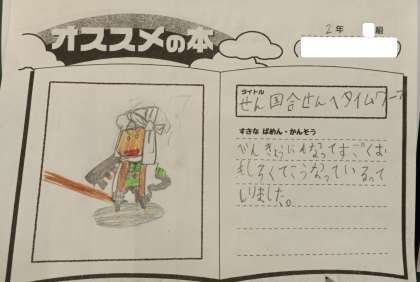 オススメの本
2年 組
タイトル
せん国合せんへタイムワープ
すきな ばめん・かんそう
べんきょうにもなってすごくお
もしろくてこうなっているって
しりました。